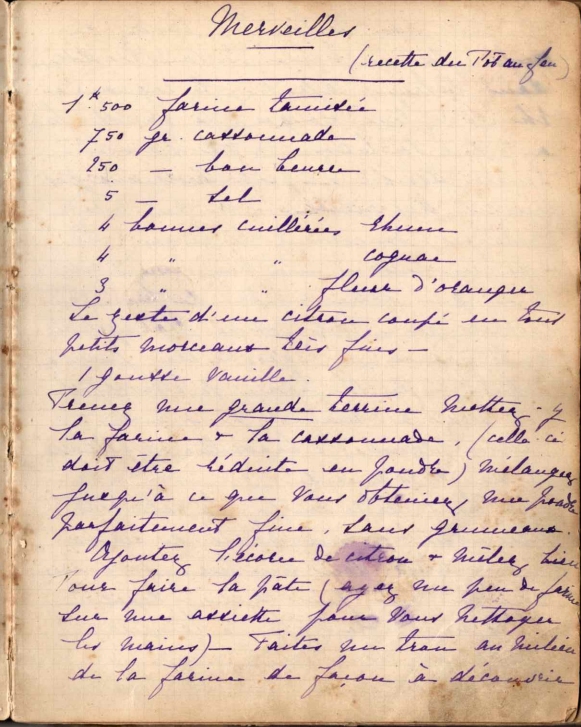 Merveilles
(recette du Pot au feu)
1k.500 farine tamisée
750 gr. cassonnade
250 — bon beurre
5 — sel
4 bonnes cuillérées Rhum
4 " " cognac
3 " " fleur d'oranger
Le zeste d'un citron coupé en tous
petits morceaux très fins —
1 gousse vanille.
Prenez une grande terrine mettez-y
la farine & la cassonnade, (celle ci
doit être réduite en poudre) mélangez
jusqu'à ce que vous obteniez une poudre
parfaitement fine, sans grumeaux.
Ajoutez l'écorce de citron & mêlez bien
Pour faire la pâte (ayez un peu de farine
sur une assiette pour vous nettoyer
les mains) — Faites un trou au milieu
de la farine de façon à découvrir